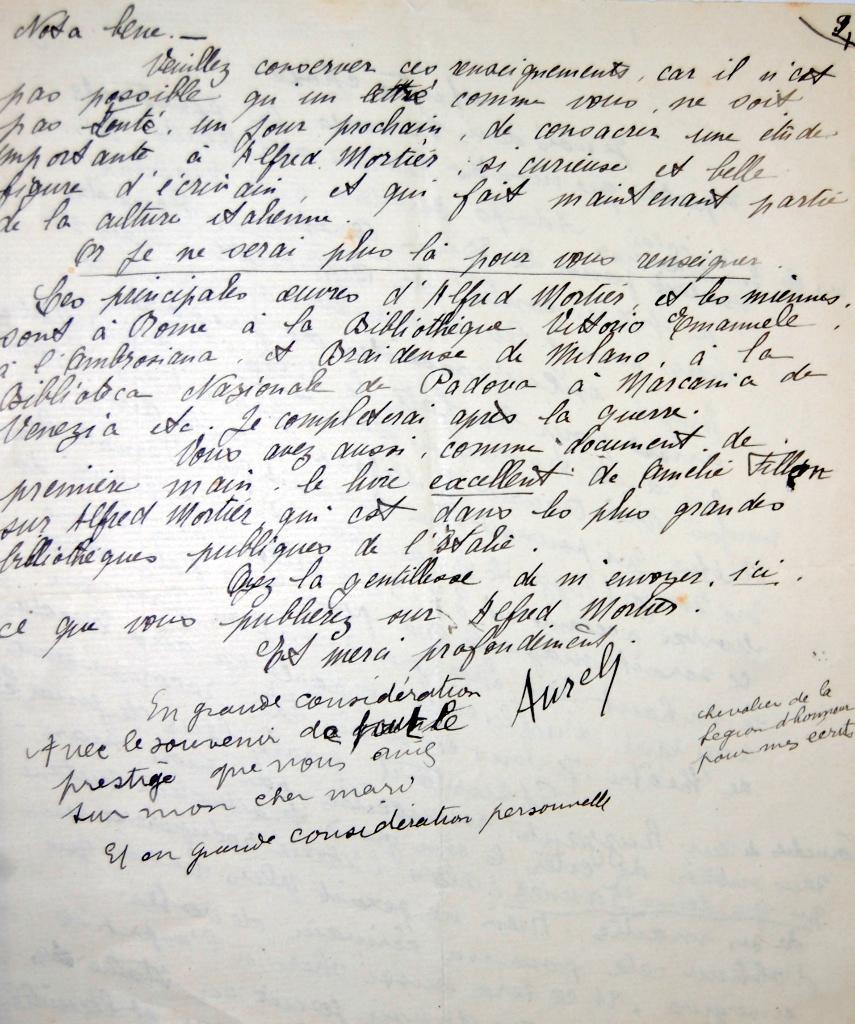 9
Nota bene. —
Veuillez conserver ces renseignements, car il n'est
pas possible qu'un lettré comme vous, ne soit
pas tenté, un jour prochain, de consacrer une étude
importante à Alfred Mortier, si curieuse et belle
figure d'écrivain, et qui fait maintenant partie
de la culture italienne.
Or je ne serai plus là pour vous renseigner.
Les principales œuvres d'Alfred Mortier, et les miennes,
sont à Rome à la Bibliothèque Vittorio Emanuele,
à l'Ambrosiana, et Braidense de Milano, à la
Biblioteca Nazionale de Padova à Marcania de
Venezia etc. Je completerai après la guerre.
Vous avez aussi, comme document de
première main, le livre excellent de Amélie Fillon
sur Alfred Mortier, qui est dans les plus grandes
bibliothèques publiques de l'Italie.
Ayez la gentillesse de m'envoyer, ici,
ce que vous publierez sur Alfred Mortier.
Et merci profondément.
En grande considération
Aurel
chevalier de la
Légion d'honneur
pour mes écrits
Avec le souvenir de
prestige que vous
sur mon cher mari
Et en grande considération personnelle